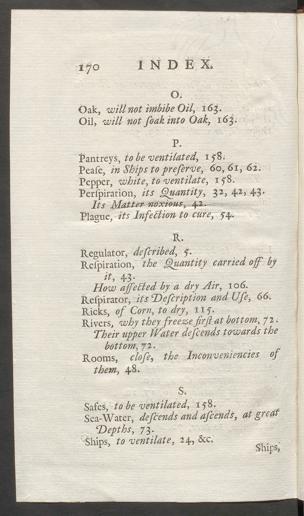 170 INDEX.
O.
Oak, will not imbibe Oil, 163.
Oil, will not ſoak into Oak, 163.
P.
Pantreys, to be ventilated, 158.
Peaſe, in Ships to preſerve, 60, 61, 62.
Pepper, white, to ventilate, 158.
Perſpiration, its Quantity, 32, 42, 43.
Its Matter noxious, 42.
Plague, its Infection to cure, 54.
R.
Regulator, deſcribed, 5.
Reſpiration, the Quantity carried off by
it, 43.
How affected by a dry Air, 106.
Reſpirator, its Deſcription and Uſe, 66.
Ricks, of Corn, to dry, 115.
Rivers, why they freeze firſt at bottom, 72.
Their upper Water deſcends towards the
bottom, 72.
Rooms, cloſe, the Inconveniencies of
them, 48.
S.
Safes, to be ventilated, 158.
Sea-Water, deſcends and aſcends, at great
Depths, 73.
Ships, to ventilate, 24, &c.
Ships,